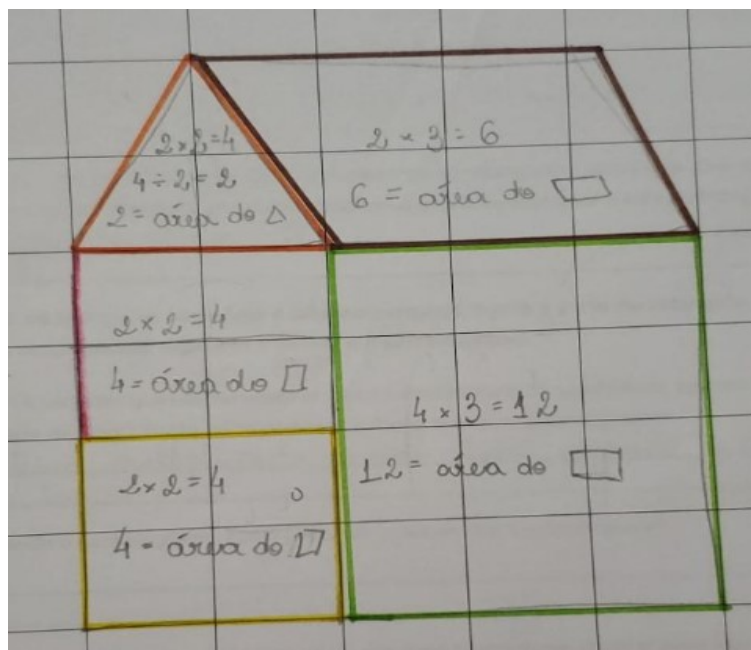 2 × 2 = 4
4 ÷ 2 = 2
2 = área do △
2 × 3 = 6
6 = área do ▱
2 × 2 = 4
4 = área do □
4 × 3 = 12
12 = área do ▭
2 × 2 = 4
4 = área do □